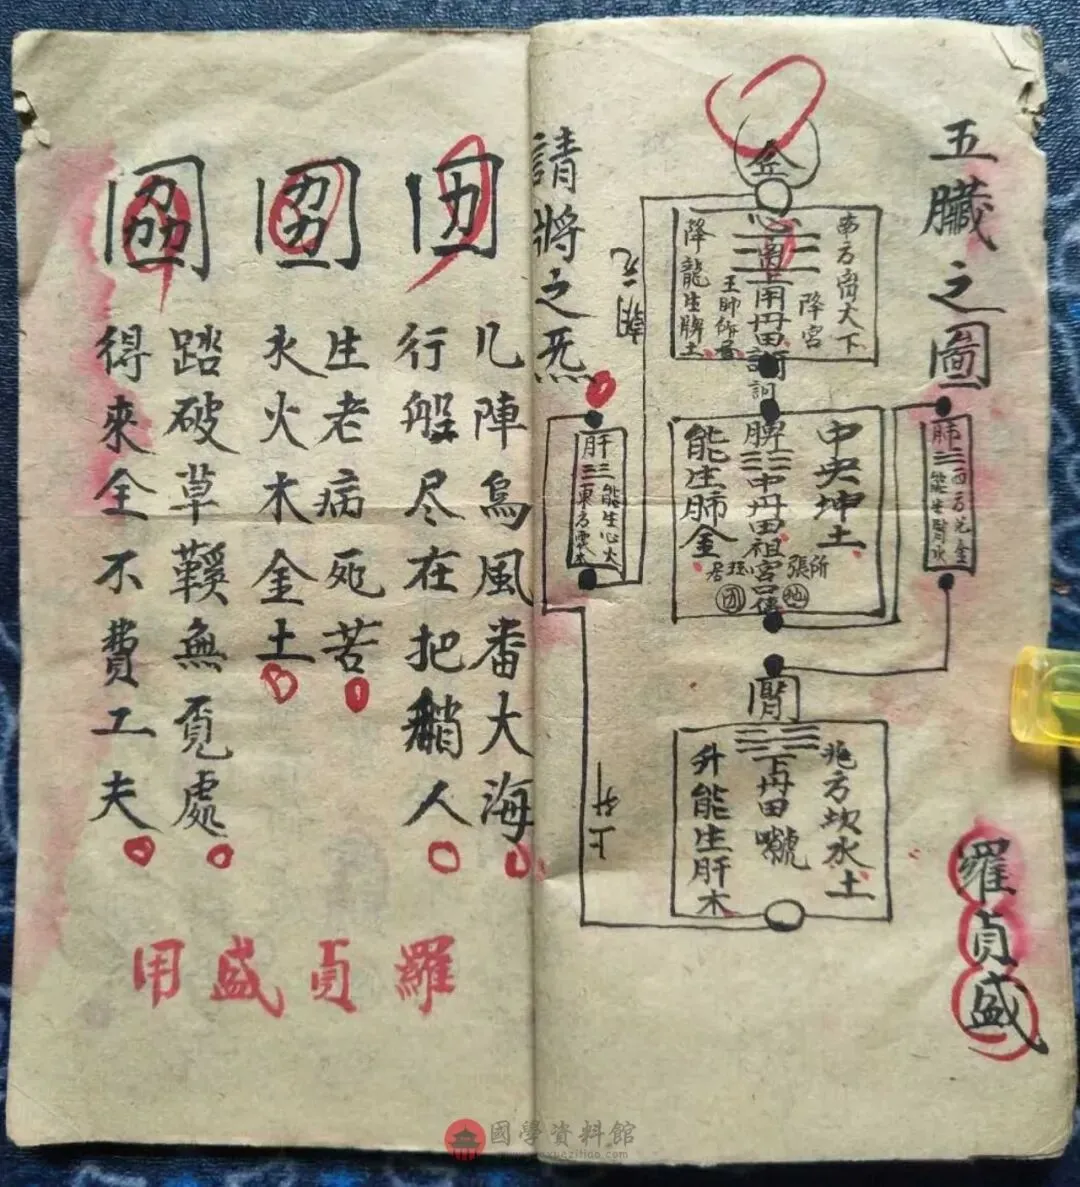 五臟之圖
羅貞盛
金
心
南方离火下
降宮
离上用丹田訶
降龍生脾土
訶
朝元
肺☱西方兌金
能生腎水
中央坤土
脾☷中丹田祖宮
能生肺金
所
張
居
肝☳東方震木
能生心火
腎
北方坎水土
下丹田
升能生肝木
上升
請將之炁
几陣烏風番大海
行船尽在把艄人
生老病死苦
水火木金土
踏破草鞋無覓處
得來全不費工夫
羅貞盛用
國學資料館